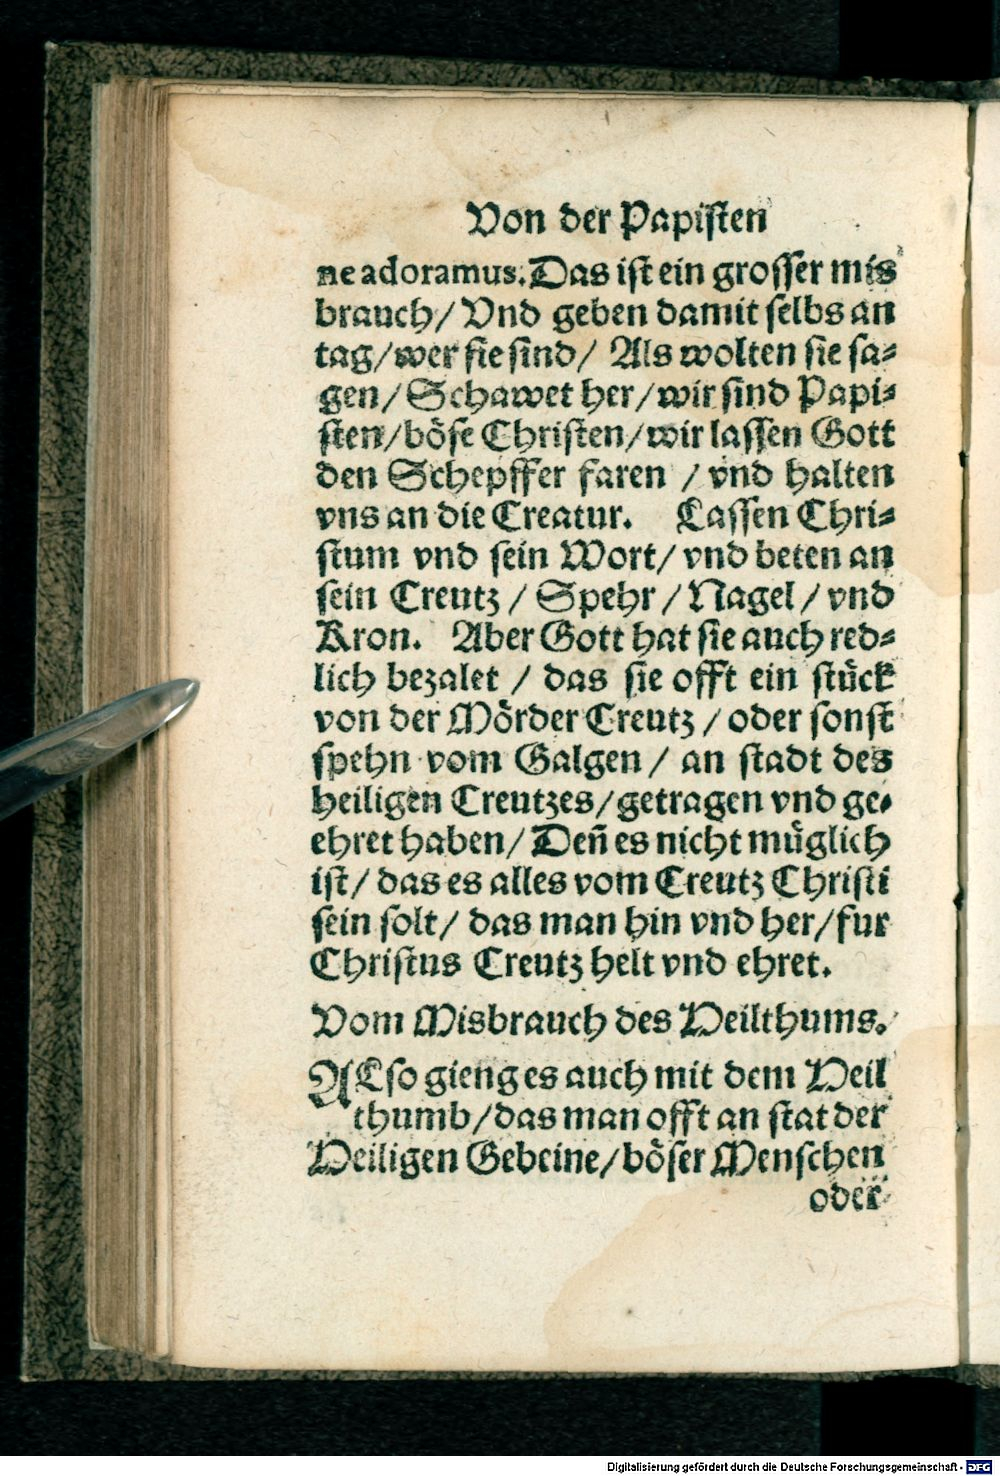 Von der Papisten
ne adoramus. Das ist ein grosser mis
brauch/ Vnd geben damit selbs an
tag/ wer sie sind/ Als wolten sie sa⸗
gen/ Schawet her/ wir sind Papi⸗
sten/ böse Christen/ wir lassen Gott
den Schepffer faren / vnd halten
vns an die Creatur. Lassen Chri⸗
stum vnd sein Wort/ vnd beten an
sein Creutz / Spehr / Nagel / vnd
Kron. Aber Gott hat sie auch red⸗
lich bezalet / das sie offt ein stück
von der Mörder Creutz / oder sonst
spehn vom Galgen / an stadt des
heiligen Creutzes/ getragen vnd ge⸗
ehret haben/ Den̄ es nicht müglich
ist/ das es alles vom Creutz Christi
sein solt/ das man hin vnd her/ fur
Christus Creutz helt vnd ehret.
Vom Misbrauch des Heilthums.
ALso gieng es auch mit dem Heil
thumb/ das man offt an stat der
Heiligen Gebeine/ böser Menschen
oder
Digitalisierung gefördert durch die Deutsche Forschungsgemeinschaft - DFG